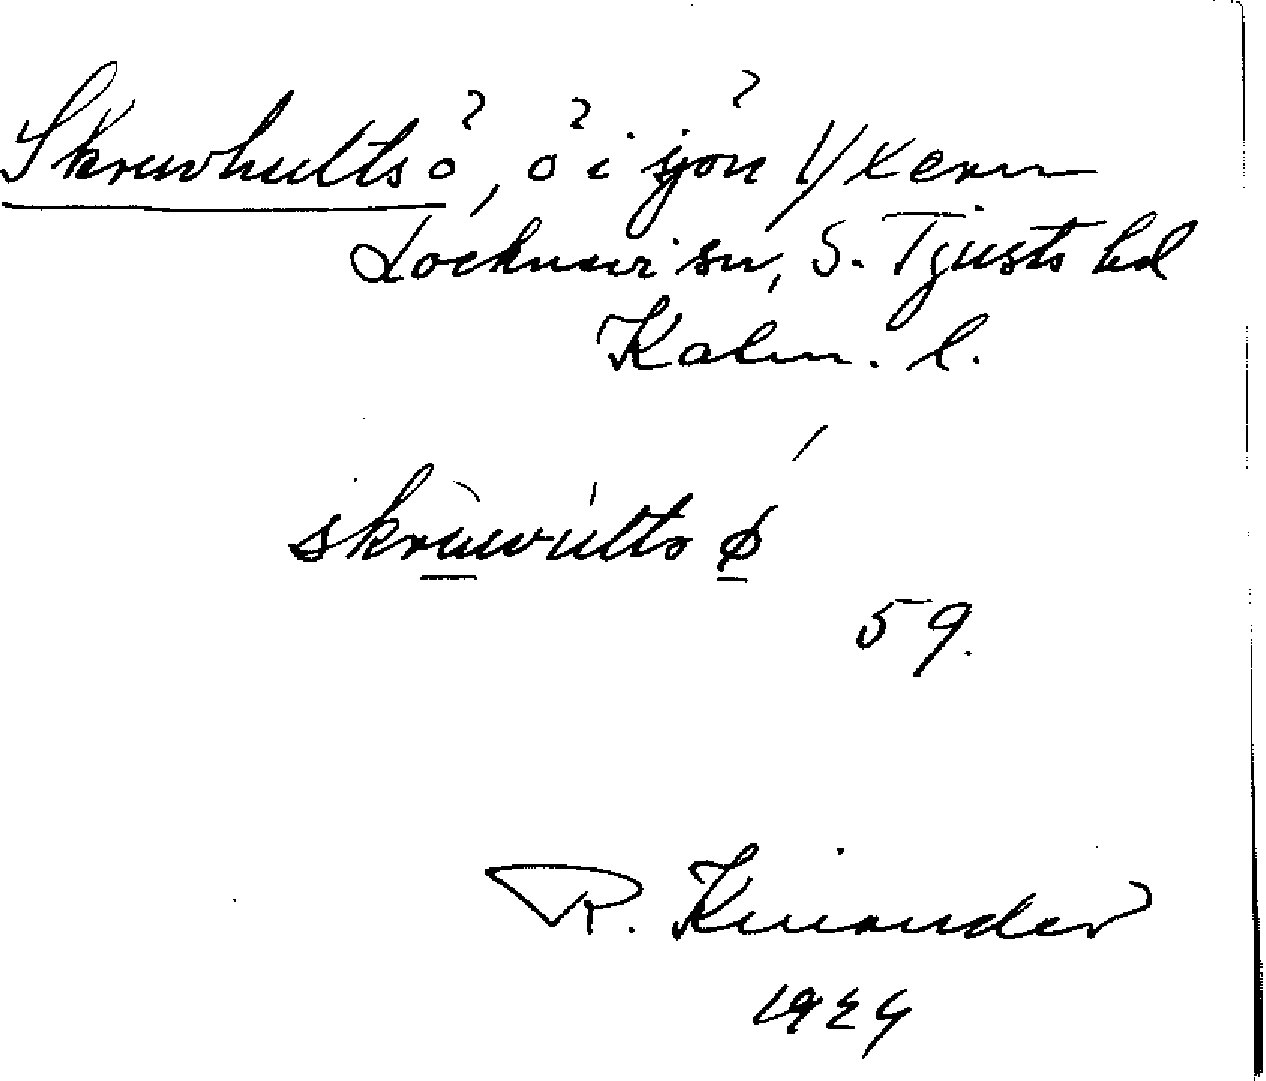 Skruvhultsö, ö i sjön Yxern
Locknevi sn, S. Tjusts hd
Kalm. l.
skrùwúlts ø
59.
R. Kinander
1924